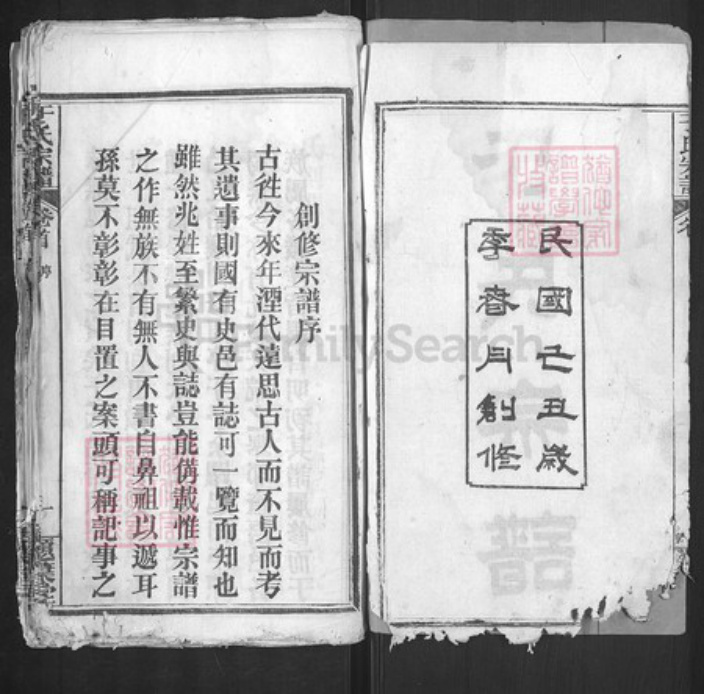 民國乙丑歲
季春月創修
創修宗譜序
古徃今來年湮代遠思古人而不見而考
其遺事則國有史邑有誌可一覽而知也
雖然兆姓至繁史與誌豈能俻載惟宗譜
之作無族不有無人不書自鼻祖以遞耳
孫莫不彰彰在目置之案頭可稱記事之
氏宗譜
卷首
序
一
FamilySearch